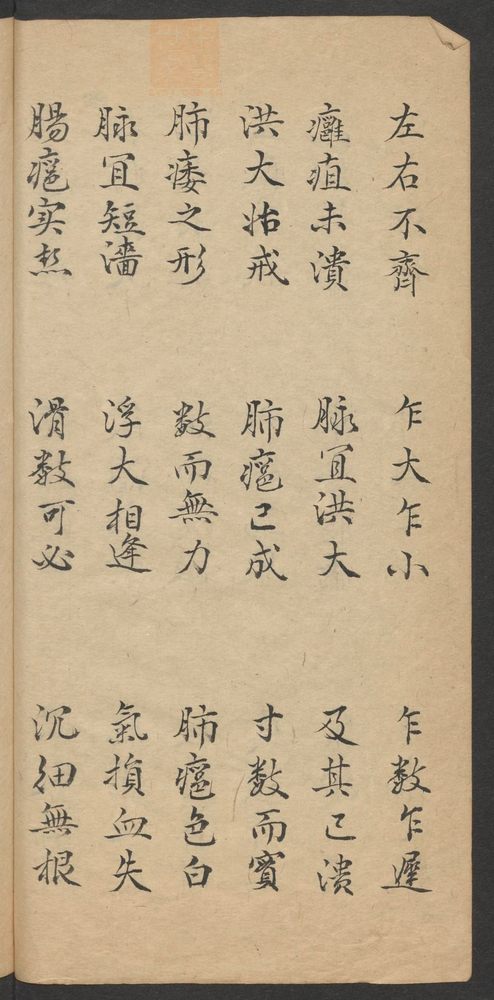 左右不齊 乍大乍小 乍數乍遲
癰疽未潰 脉宜洪大 及其已潰
洪大始戒 肺癰已成 寸數而實
肺痿之形 数而無力 肺癰色白
脉宜短濇 浮大相逢 氣損血失
腸癰实热 滑數可必 沉细無根